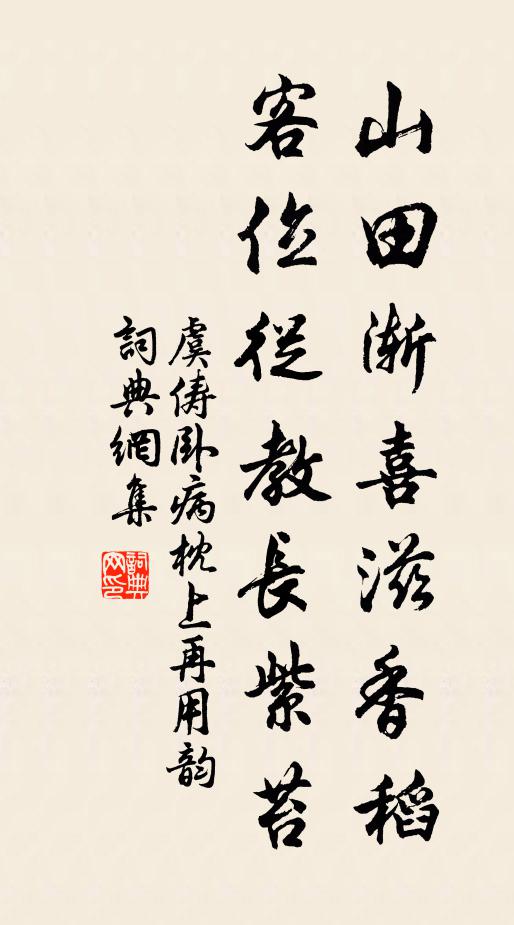 山田漸喜滋香稻
客位從教長紫苔
虞儔臥病枕上再用韵
詞典網集
詞典網印